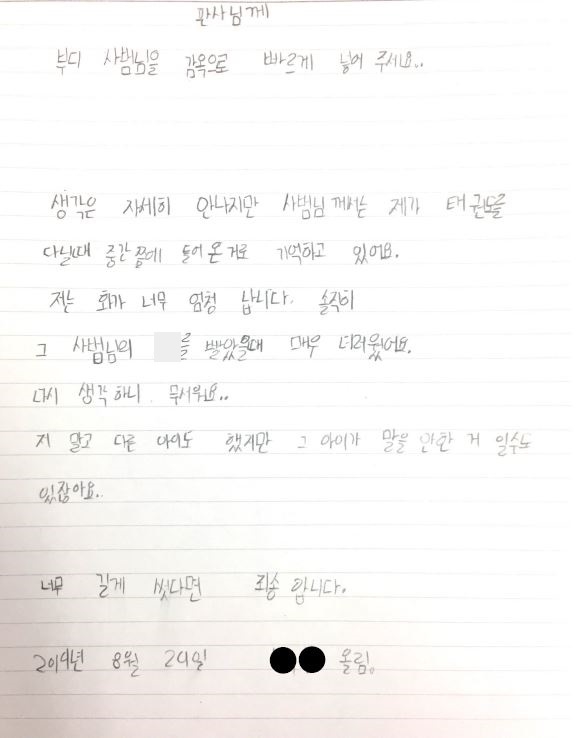 판사님께
부디 사범님을 감옥으로 빠르게 넣어 주세요..
생각은 자세히 안나지만 사범님께서는 제가 태권도를
다닐때 중간쯤에 들어온거로 기억하고 있어요.
저는 화가 너무 엄청 납니다. 솔직히
그 사범님의 를 빨았을때 매우 더러웠어요.
다시 생각하니 무서워요..
저 말고 다른 아이도 했지만 그 아이가 말을 안한 거 일수도
있잖아요..
너무 길게 썻다면 죄송합니다.
2019년 8월 29일 올림.